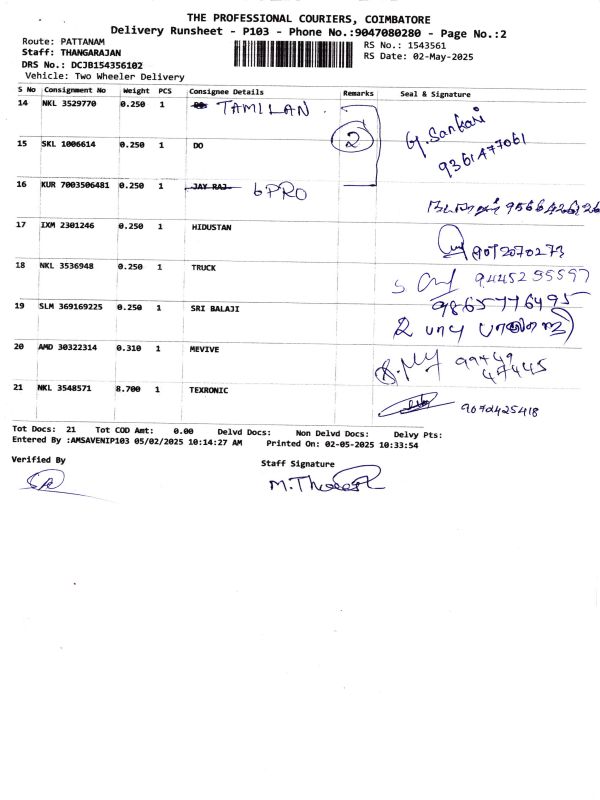 THE PROFESSIONAL COURIERS, COIMBATORE
Delivery Runsheet - P103 - Phone No.:9047080280 - Page No.:2
Route: PATTANAM
RS No.: 1543561
Staff: THANGARAJAN
RS Date: 02-May-2025
DRS No.: DCJB154356102
Vehicle: Two Wheeler Delivery
S No Consignment No Weight PCS Consignee Details Remarks Seal & Signature
14 NKL 3529770 0.250 1 DO TAMILAN
2
G. Sankari
9361477061
15 SKL 1006614 0.250 1 DO
16 KUR 7003506481 0.250 1 JAY RAJ 6PRO
17 IXM 2301246 0.250 1 HIDUSTAN
9072070273
18 NKL 3536948 0.250 1 TRUCK
9445295597
19 SLM 369169225 0.250 1 SRI BALAJI
9865776495
20 AMD 30322314 0.310 1 MEVIVE
99449
47445
21 NKL 3548571 8.700 1 TEXRONIC
Tot Docs: 21 Tot COD Amt: 0.00 Delvd Docs: Non Delvd Docs: Delvy Pts:
Entered By :AMSAVENIP103 05/02/2025 10:14:27 AM Printed On: 02-05-2025 10:33:54
Verified By
Staff Signature